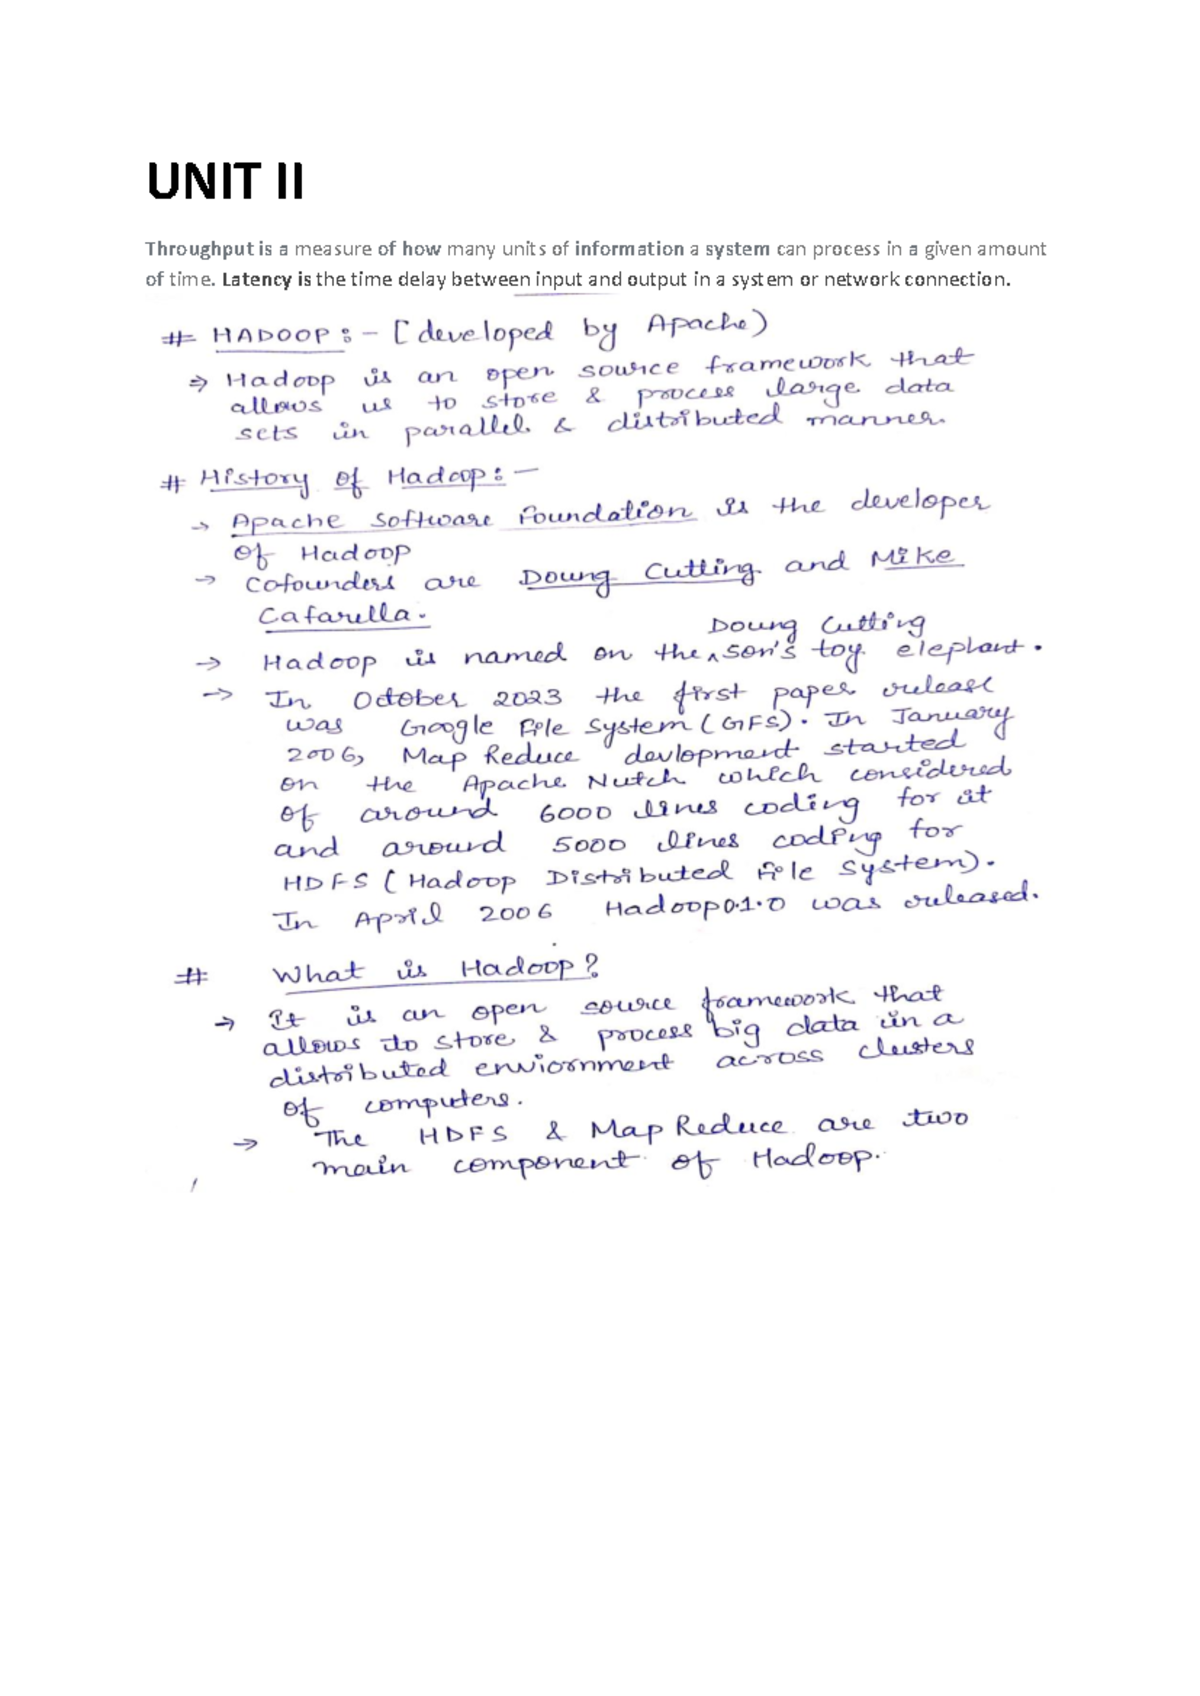 UNIT II
Throughput is a measure of how many units of information a system can process in a given amount
of time. Latency is the time delay between input and output in a system or network connection.
# HADOOP :- [developed by Apache)
⇒ Hadoop is an open source framework that
allows us to store & process large data
sets in parallel & distributed manner.
# History of Hadoop:-
→ Apache Software Foundation is the developer
of Hadoop
→ Cofounders are Doung Cutting and Mike
Cafarella.
Doung Cutting
→ Hadoop is named on the ^ son's toy elephant.
→ In October 2023 the first paper release
was Google File System (GFS). In January
2006, Map Reduce devlopment started
on the Apache Nutch which considered
of around 6000 lines coding for it
and around 5000 lines coding for
HDFS (Hadoop Distributed File System).
In April 2006 Hadoop 0.1.0 was released.
# What is Hadoop?
→ It is an open source framework that
allows to store & process big data in a
distributed enviornment across clusters
of computers.
→ The HDFS & Map Reduce are two
main component of Hadoop.